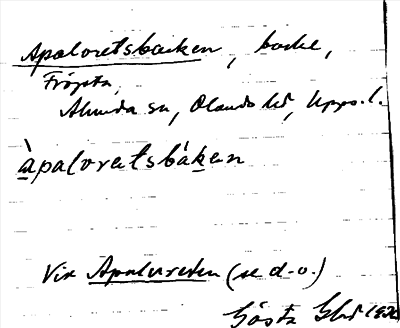 Apaloretsbacken, backe,
Fröpsta,
Alunda sn, Olands hd, Upps. l.
àpaloretsbáken
Vix Apaloreten (se d.o.)
Gösta